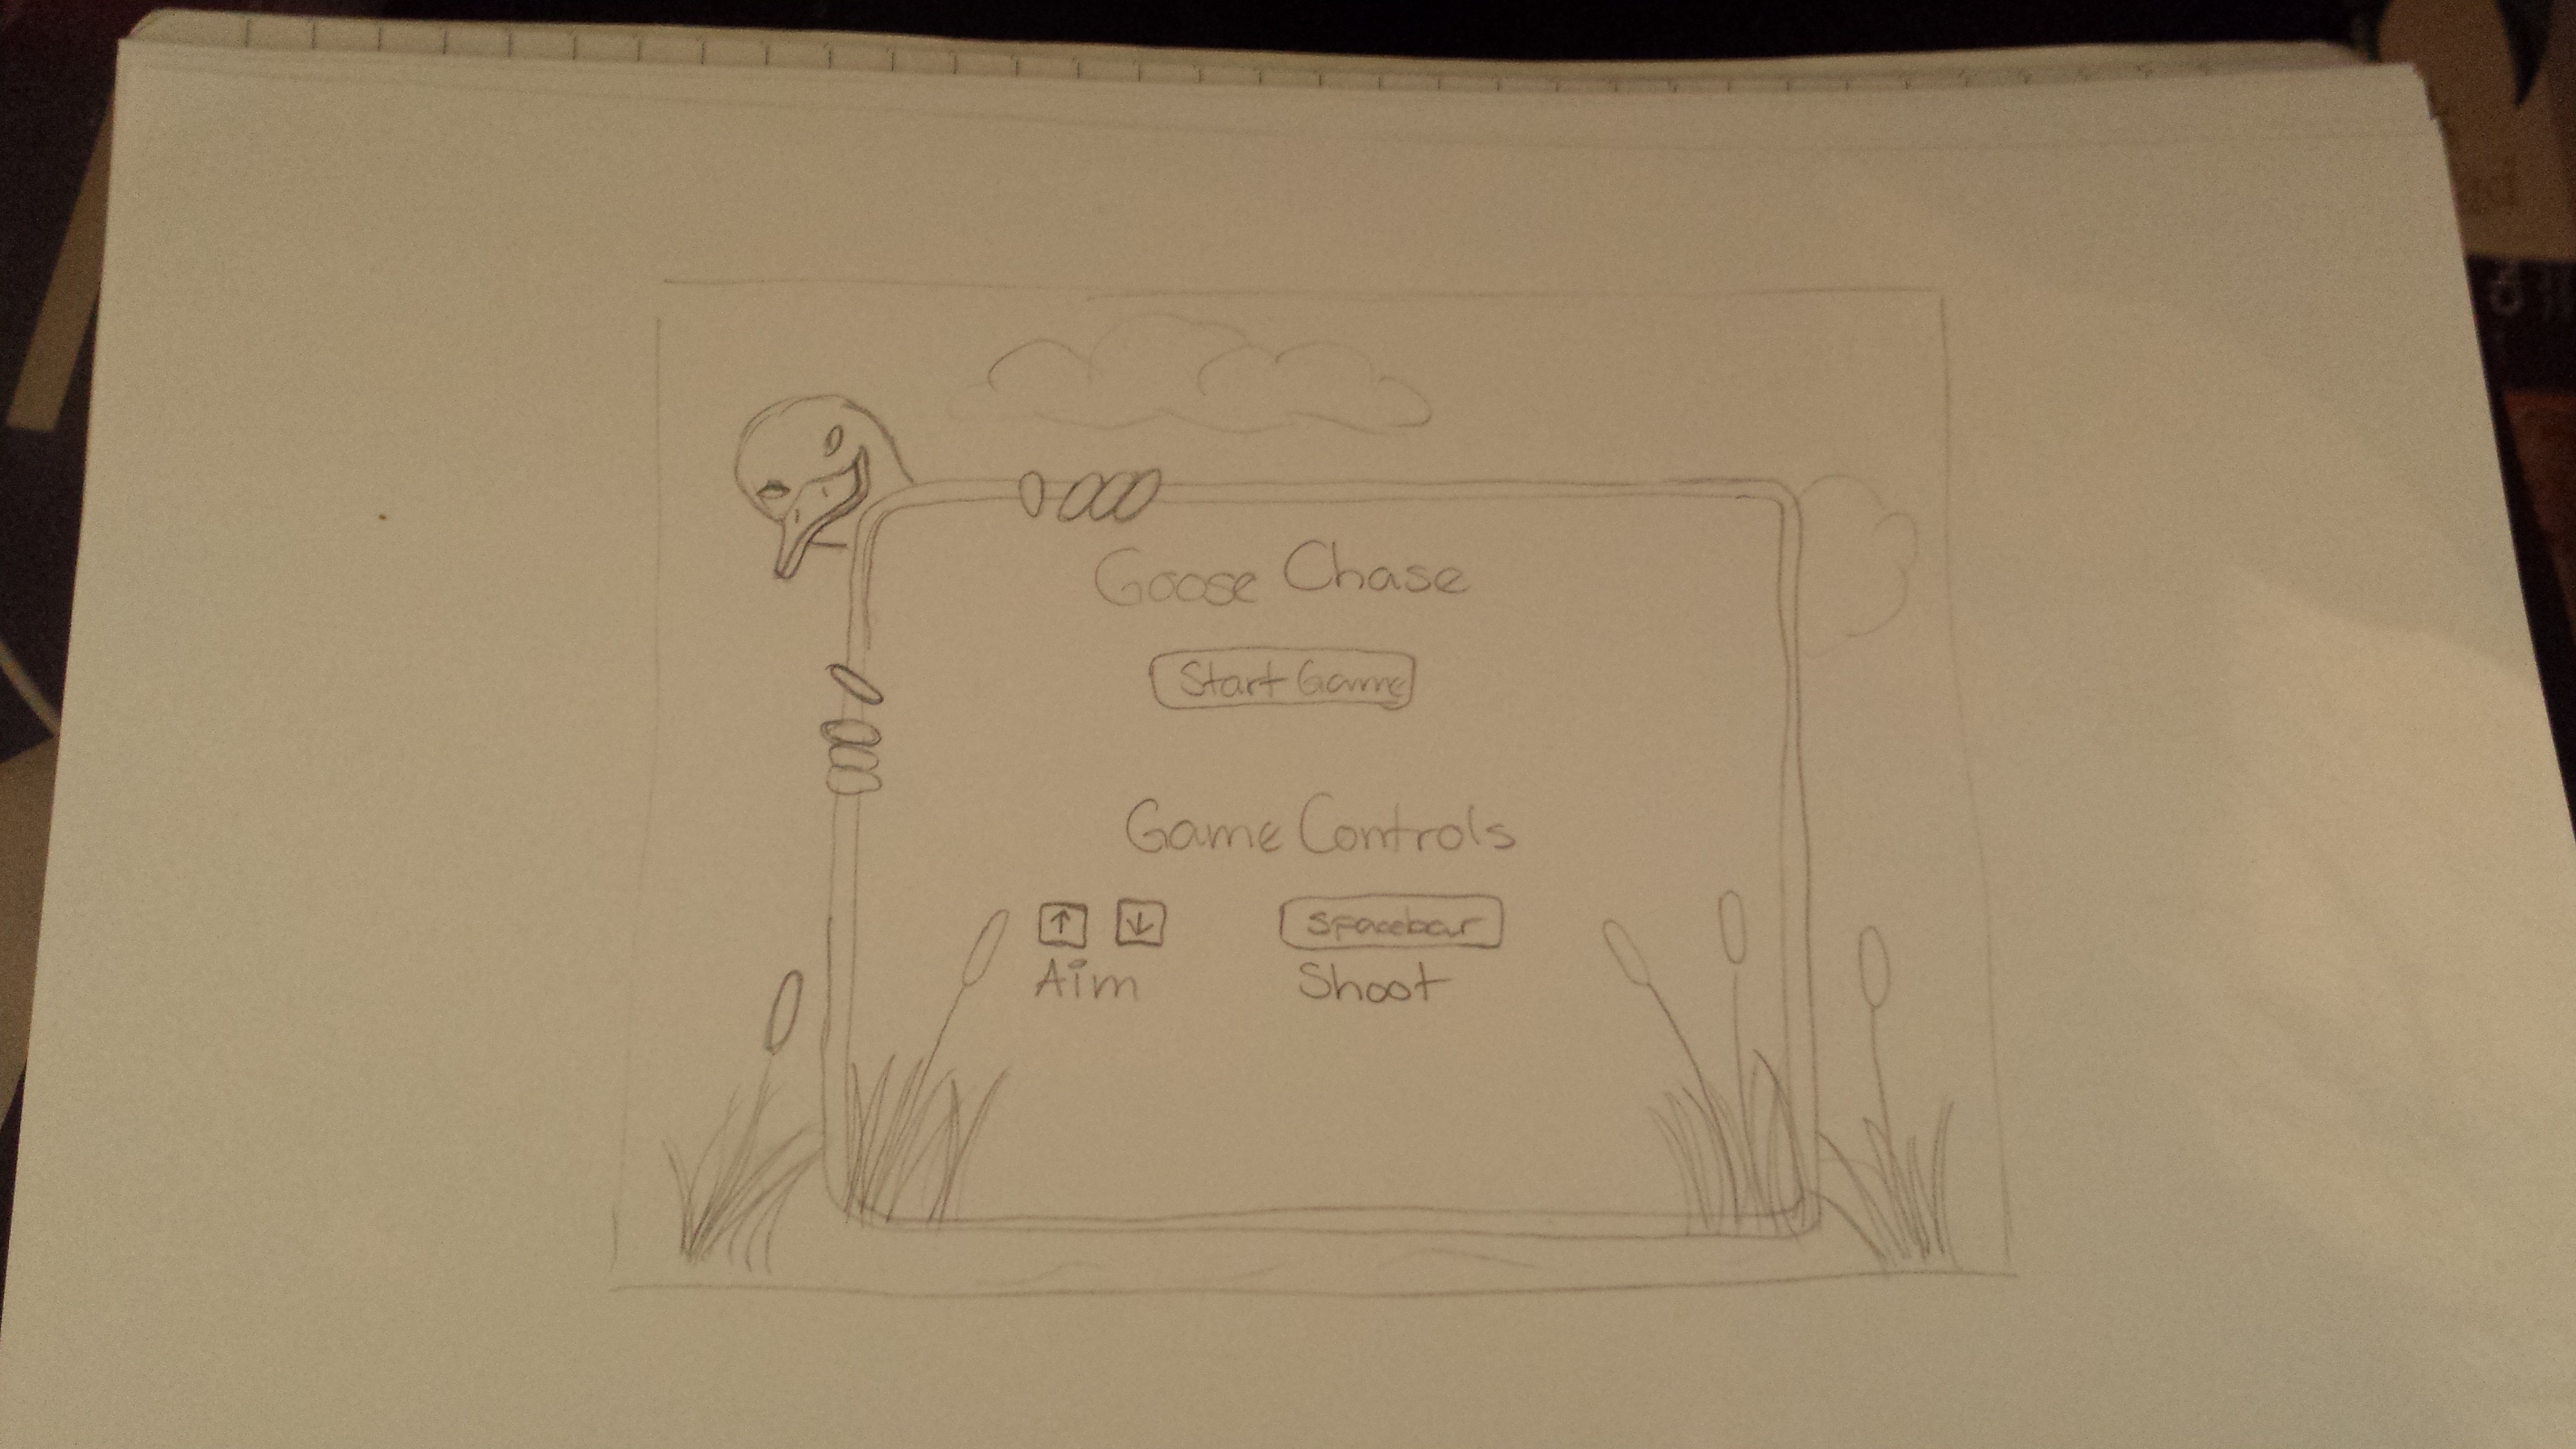 Goose Chase
Start Game
Game Controls
↑ ↓ Spacebar
Aim Shoot